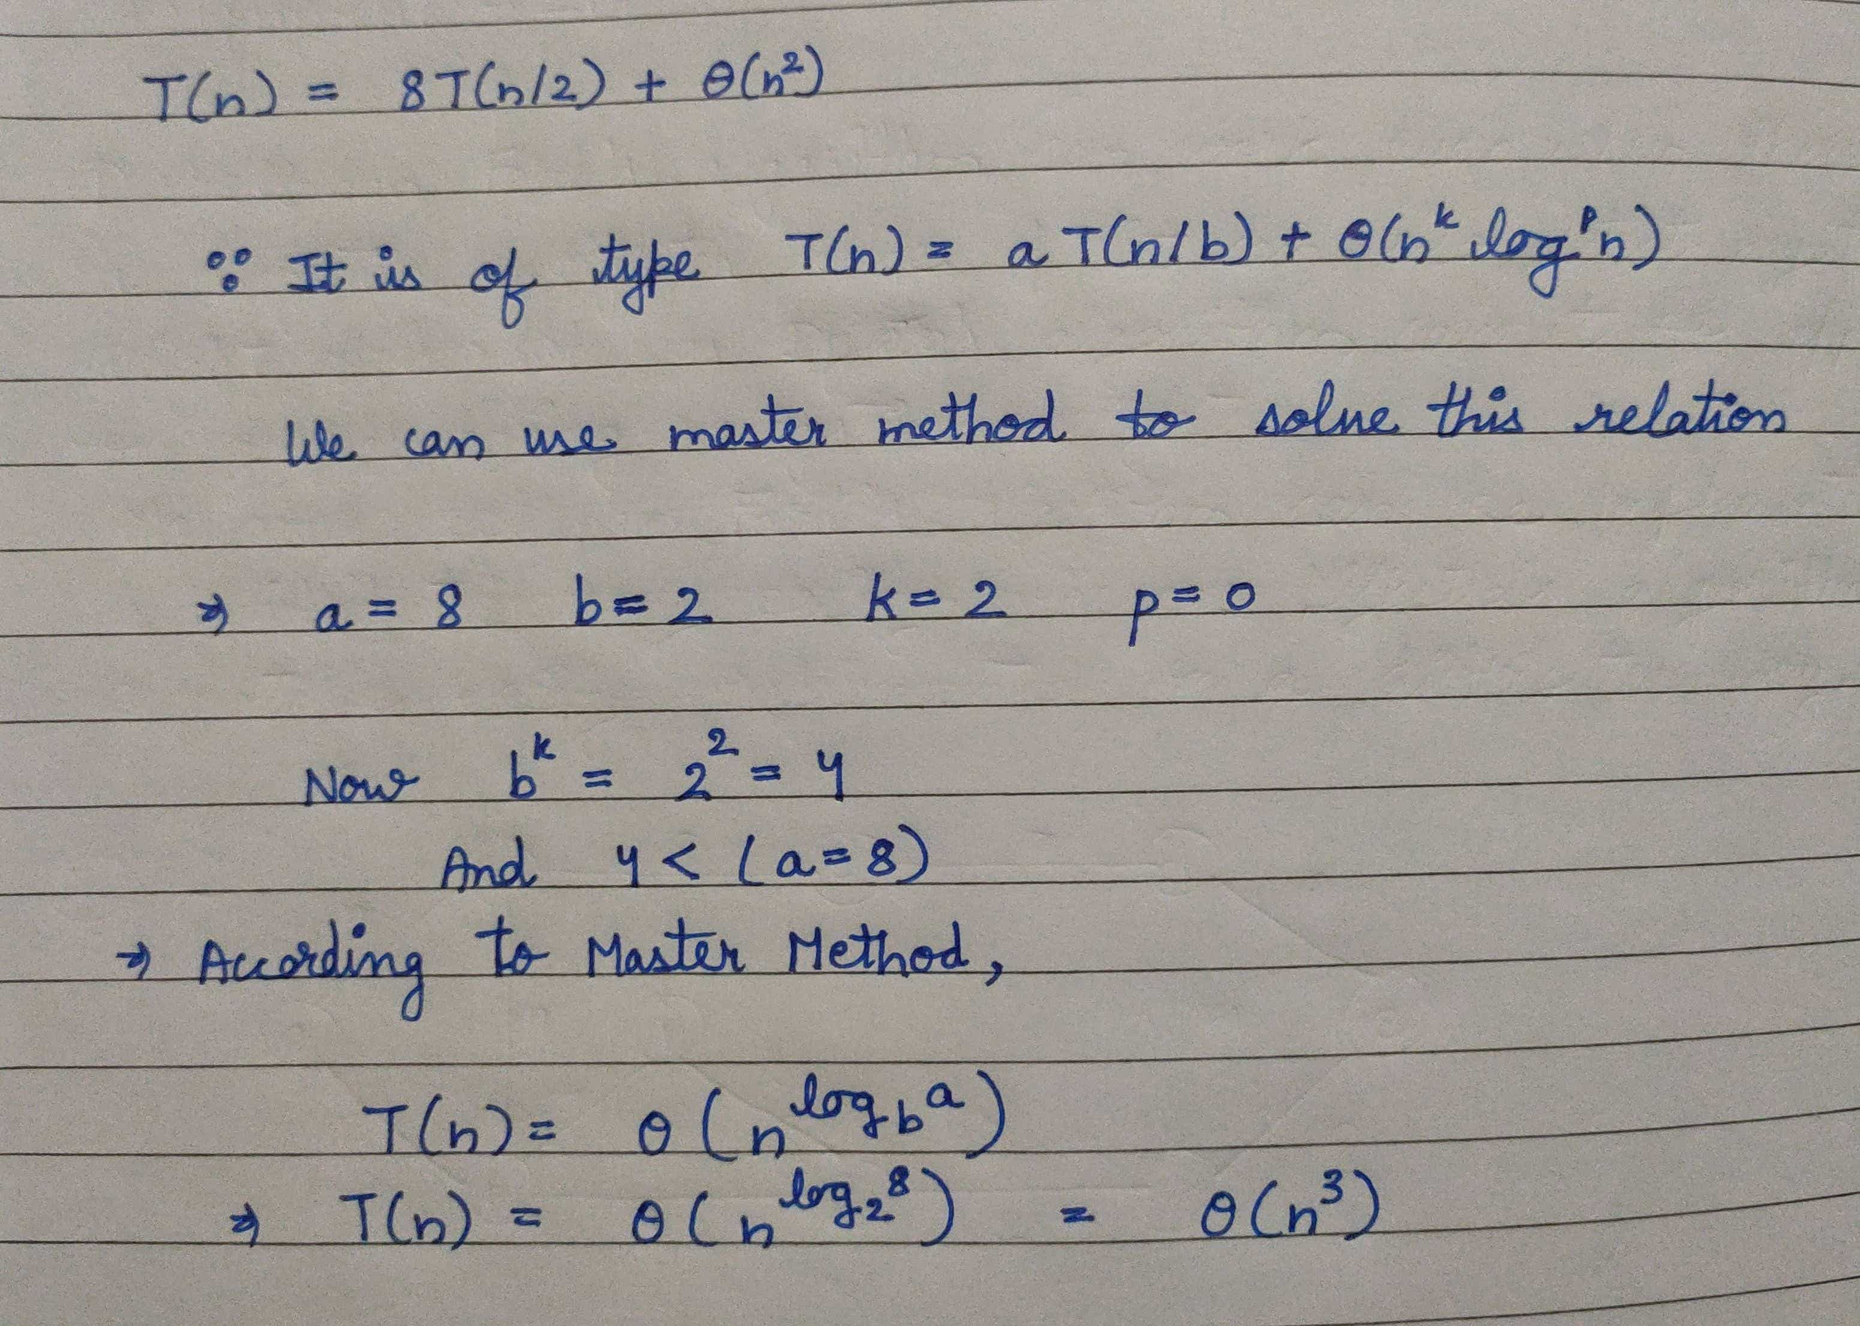 T(n) = 8T(n/2) + θ(n²)
∵ It is of type T(n) = a T(n/b) + θ(n^k log^p n)
We can use master method to solve this relation
⇒ a = 8 b = 2 k = 2 p = 0
Now b^k = 2² = 4
And 4 < (a = 8)
⇒ According to Master Method,
T(n) = θ(n^(log_b a))
⇒ T(n) = θ(n^(log_2 8)) = θ(n³)